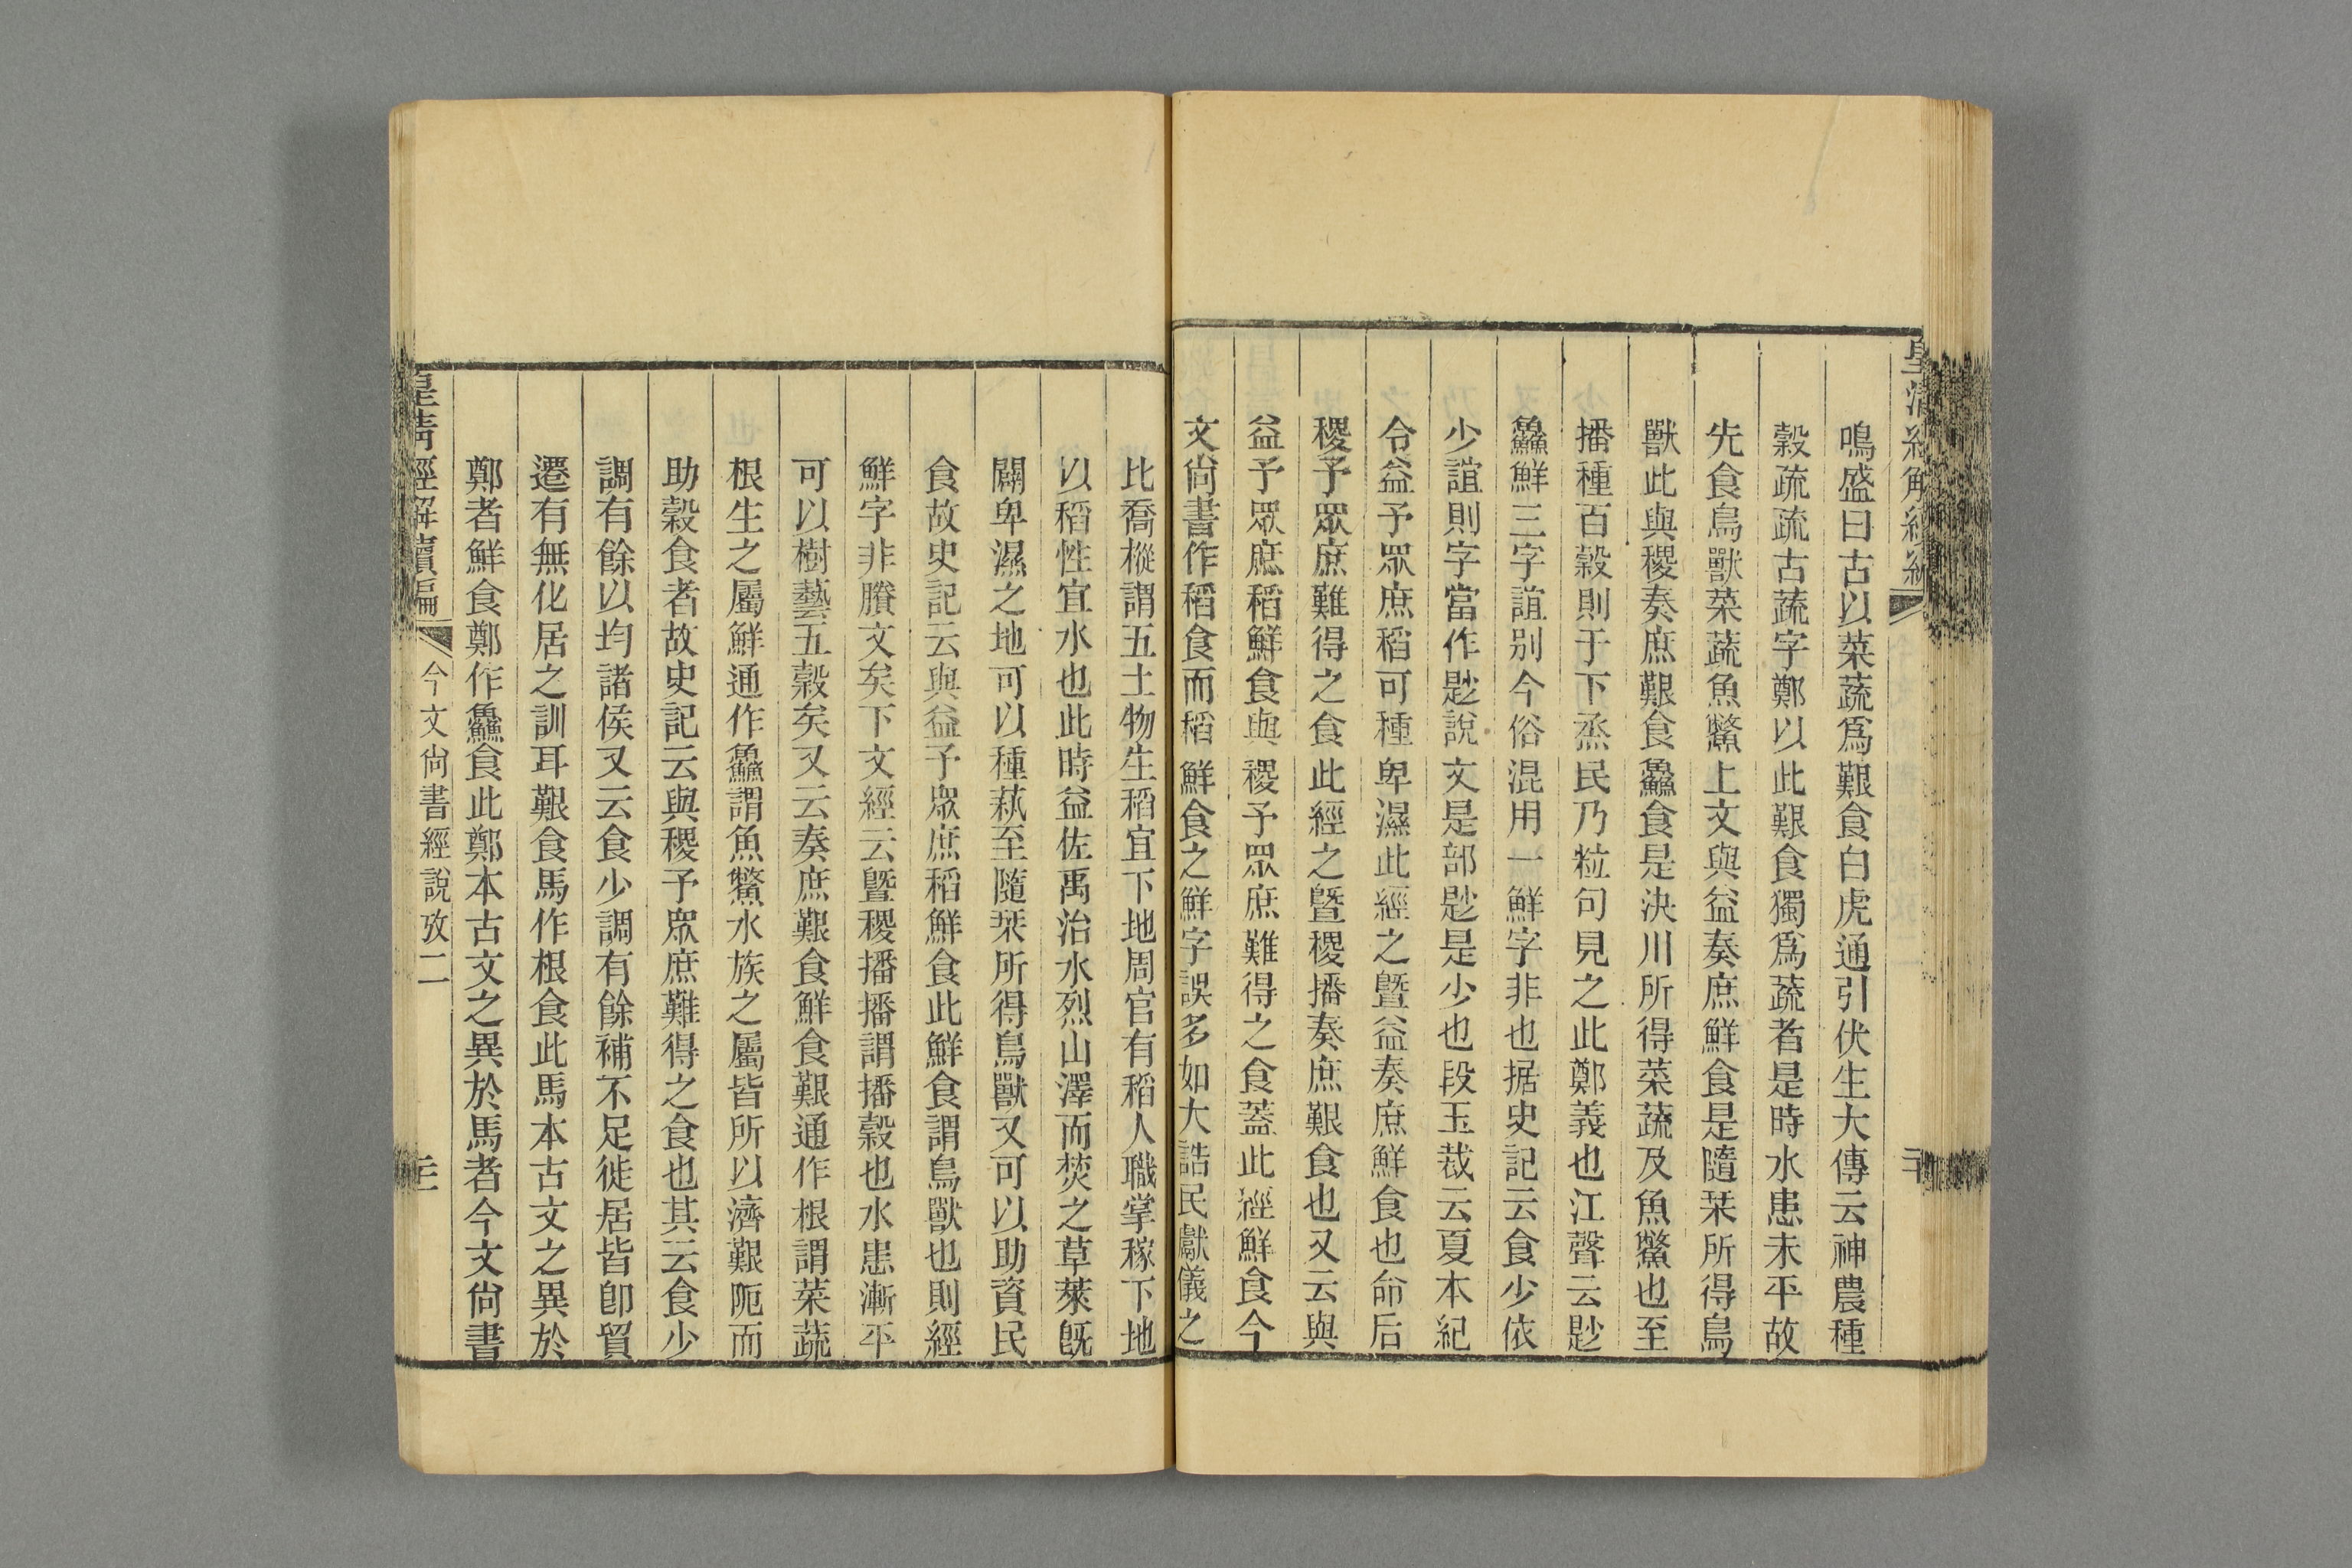 皇清經解續編
鳴盛曰古以菜蔬爲艱食白虎通引伏生大傳云神農種
穀疏疏古蔬字鄭以此艱食獨爲蔬者是時水患未平故
先食鳥獸菜蔬魚鱉上文與益奏庶鮮食是隨栞所得鳥
獸此與稷奏庶艱食鱻食是決川所得菜蔬及魚鱉也至
播種百穀則于下烝民乃粒句見之此鄭義也江聲云尟
鱻鮮三字誼别今俗混用一鮮字非也据史記云食少依
少誼則字當作尟說文是部尟是少也段玉裁云夏本紀
令益予眾庶稻可種卑濕此經之曁益奏庶鮮食也命后
稷予眾庶難得之食此經之曁稷播奏庶艱食也又云與
益予眾庶稻鮮食與稷予眾庶難得之食蓋此經鮮食今
文尙書作稻食而稻鮮食之鮮字誤多如大誥民獻儀之
比喬樅謂五土物生稻宜下地周官有稻人職掌稼下地
以稻性宜水也此時益佐禹治水烈山澤而焚之草萊旣
闢卑濕之地可以種蓺至隨栞所得鳥獸又可以助資民
食故史記云與益予眾庶稻鮮食此鮮食謂鳥獸也則經
鮮字非賸文矣下文經云曁稷播播謂播穀也水患漸平
可以樹藝五穀矣又云奏庶艱食鮮食艱通作根謂菜蔬
根生之屬鮮通作鱻謂魚鱉水族之屬皆所以濟艱阨而
助穀食者故史記云與稷予眾庶難得之食也其云食少
調有餘以均諸侯又云食少調有餘補不足徙居皆卽貿
遷有無化居之訓耳艱食馬作根食此馬本古文之異於
鄭者鮮食鄭作鱻食此鄭本古文之異於馬者今文尙書
皇淸經解續編
今文尙書經說攷二